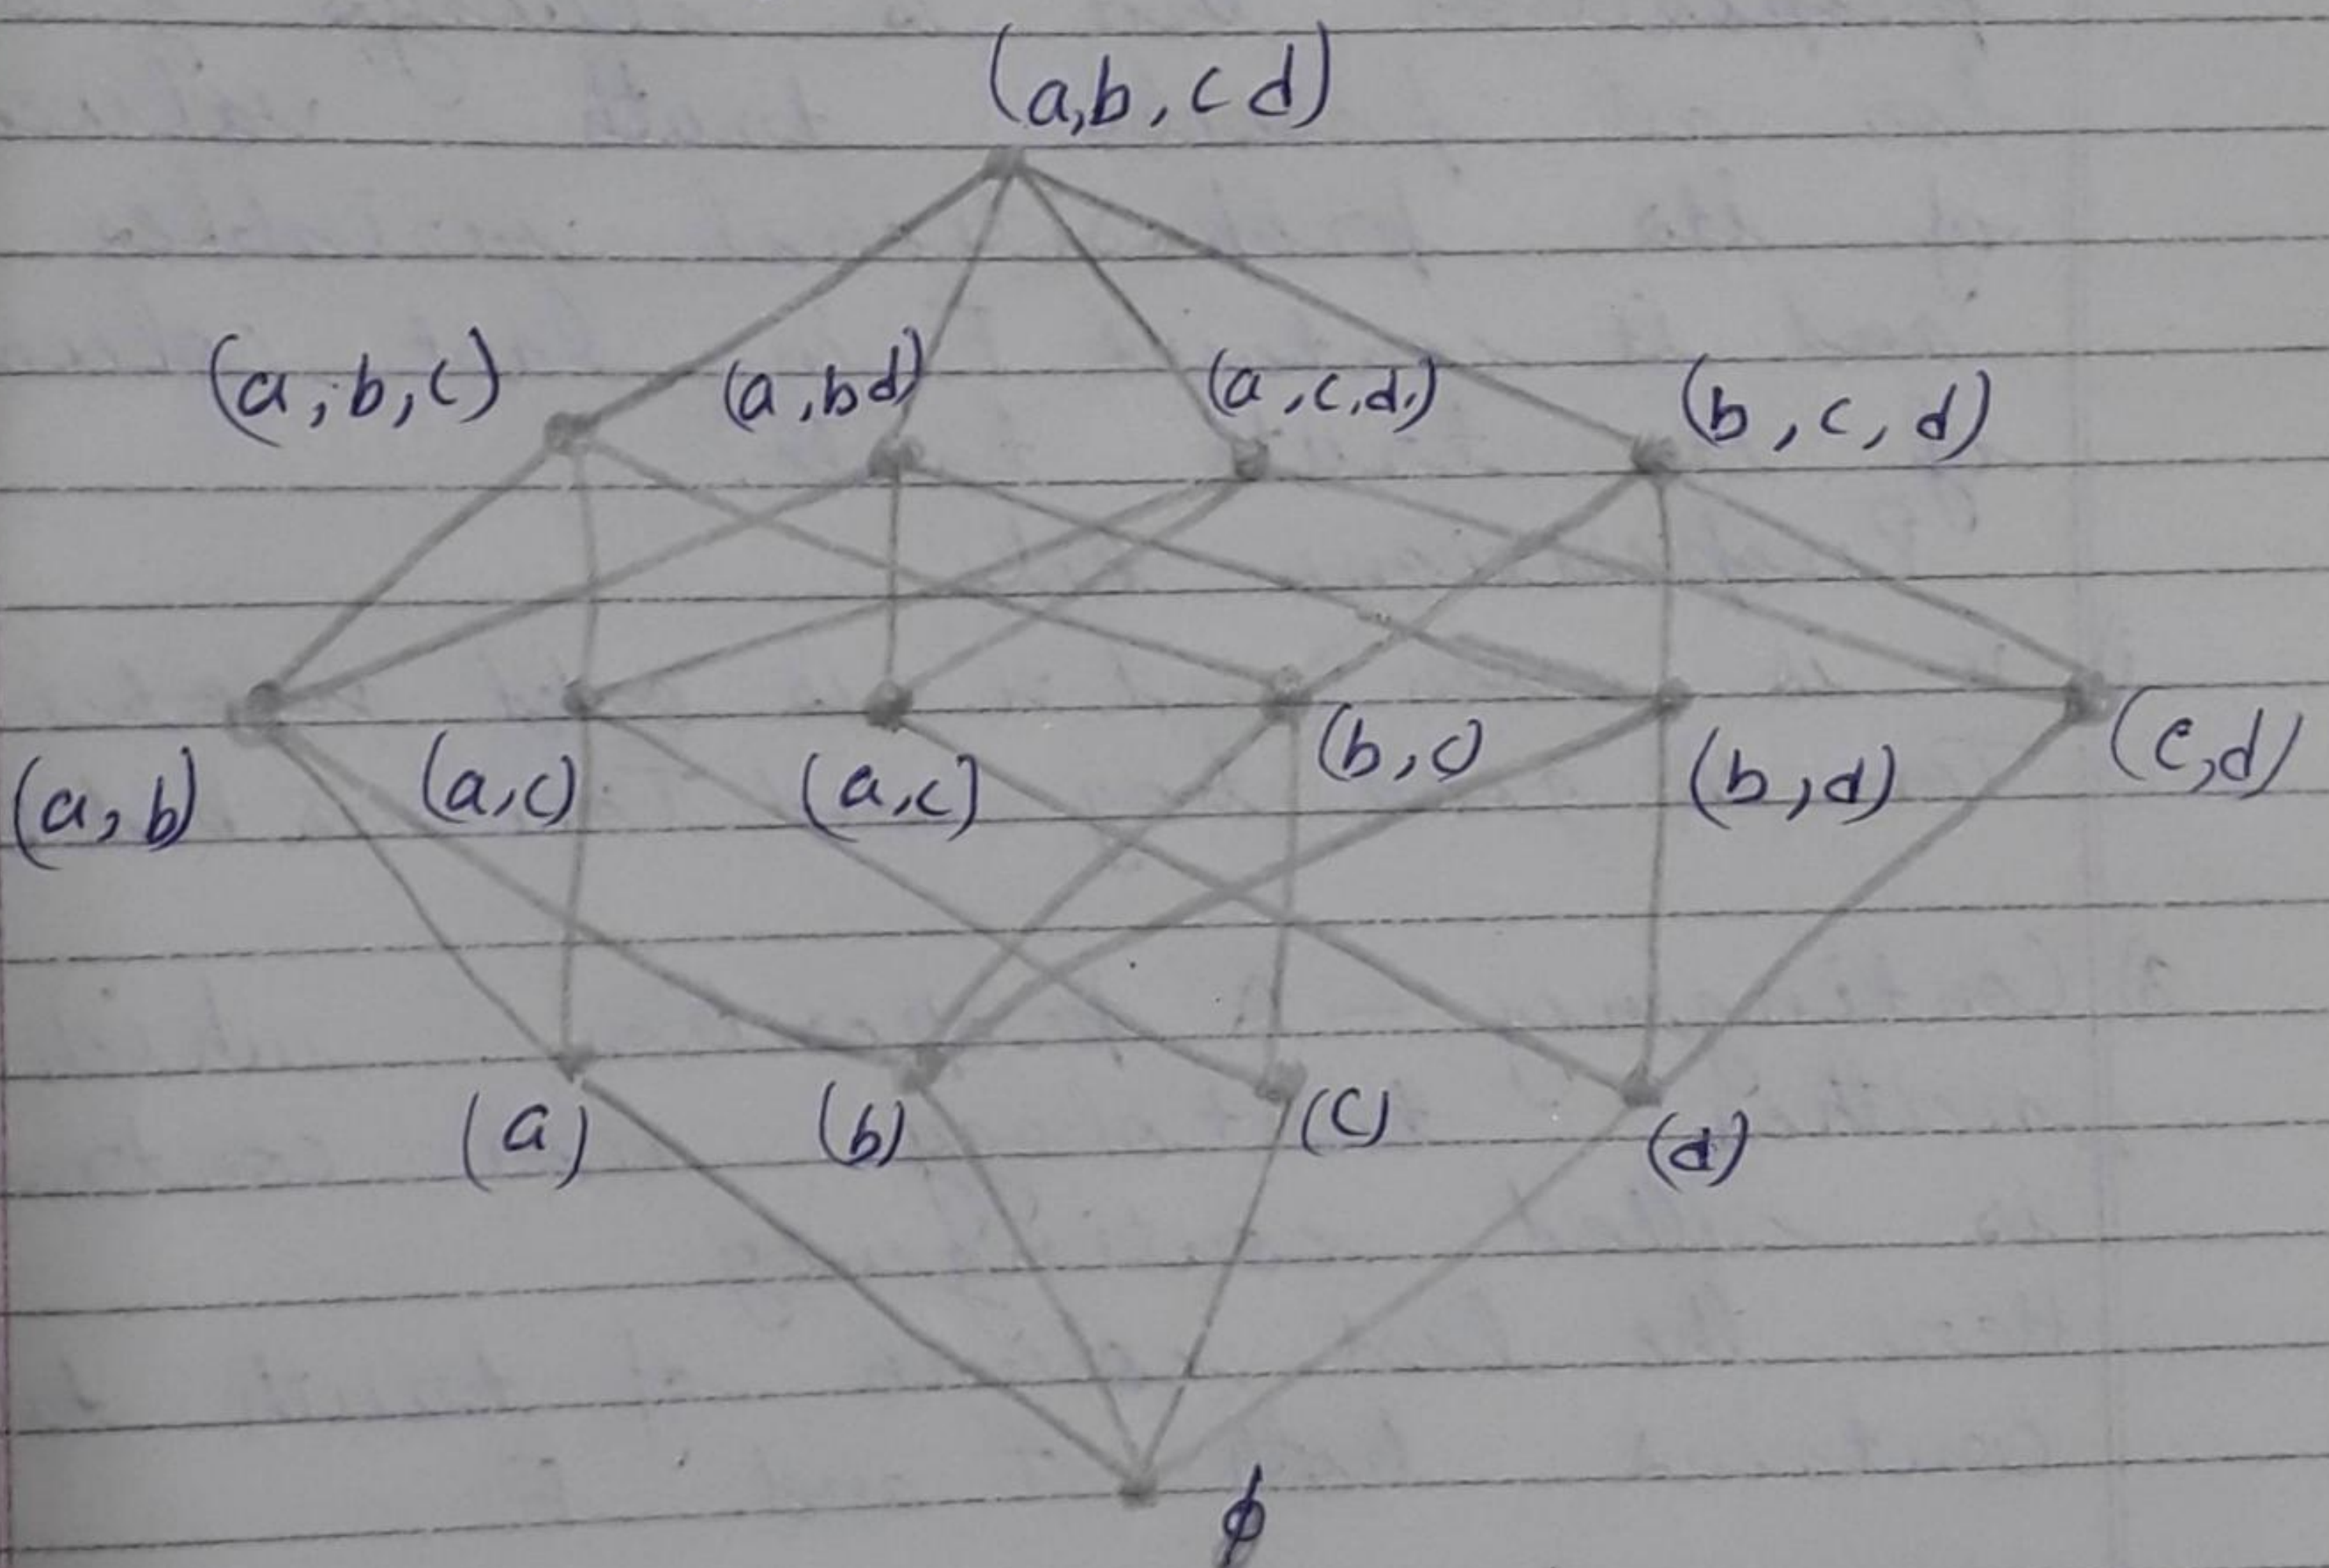 (a,b,c d)
(a,b,c) (a,bd) (a,c,d,) (b,c,d)
(a,b) (a,c) (a,c) (b,c) (b,d) (c,d)
(a) (b) (c) (d)
ϕ